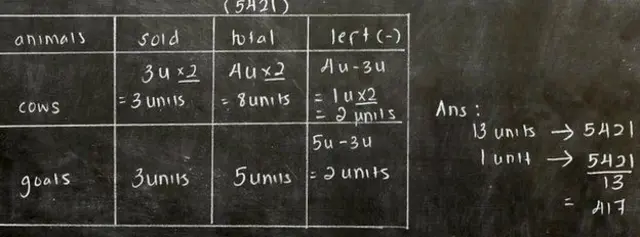 (5421)
animals sold total left (-)
cows
3u x2
= 3 units
4u x2
= 8 units
4u - 3u
= 1u x2
= 2 units
goats
3 units
5 units
5u - 3u
= 2 units
Ans :
13 units → 5421
1 unit → 5421
13
= 417